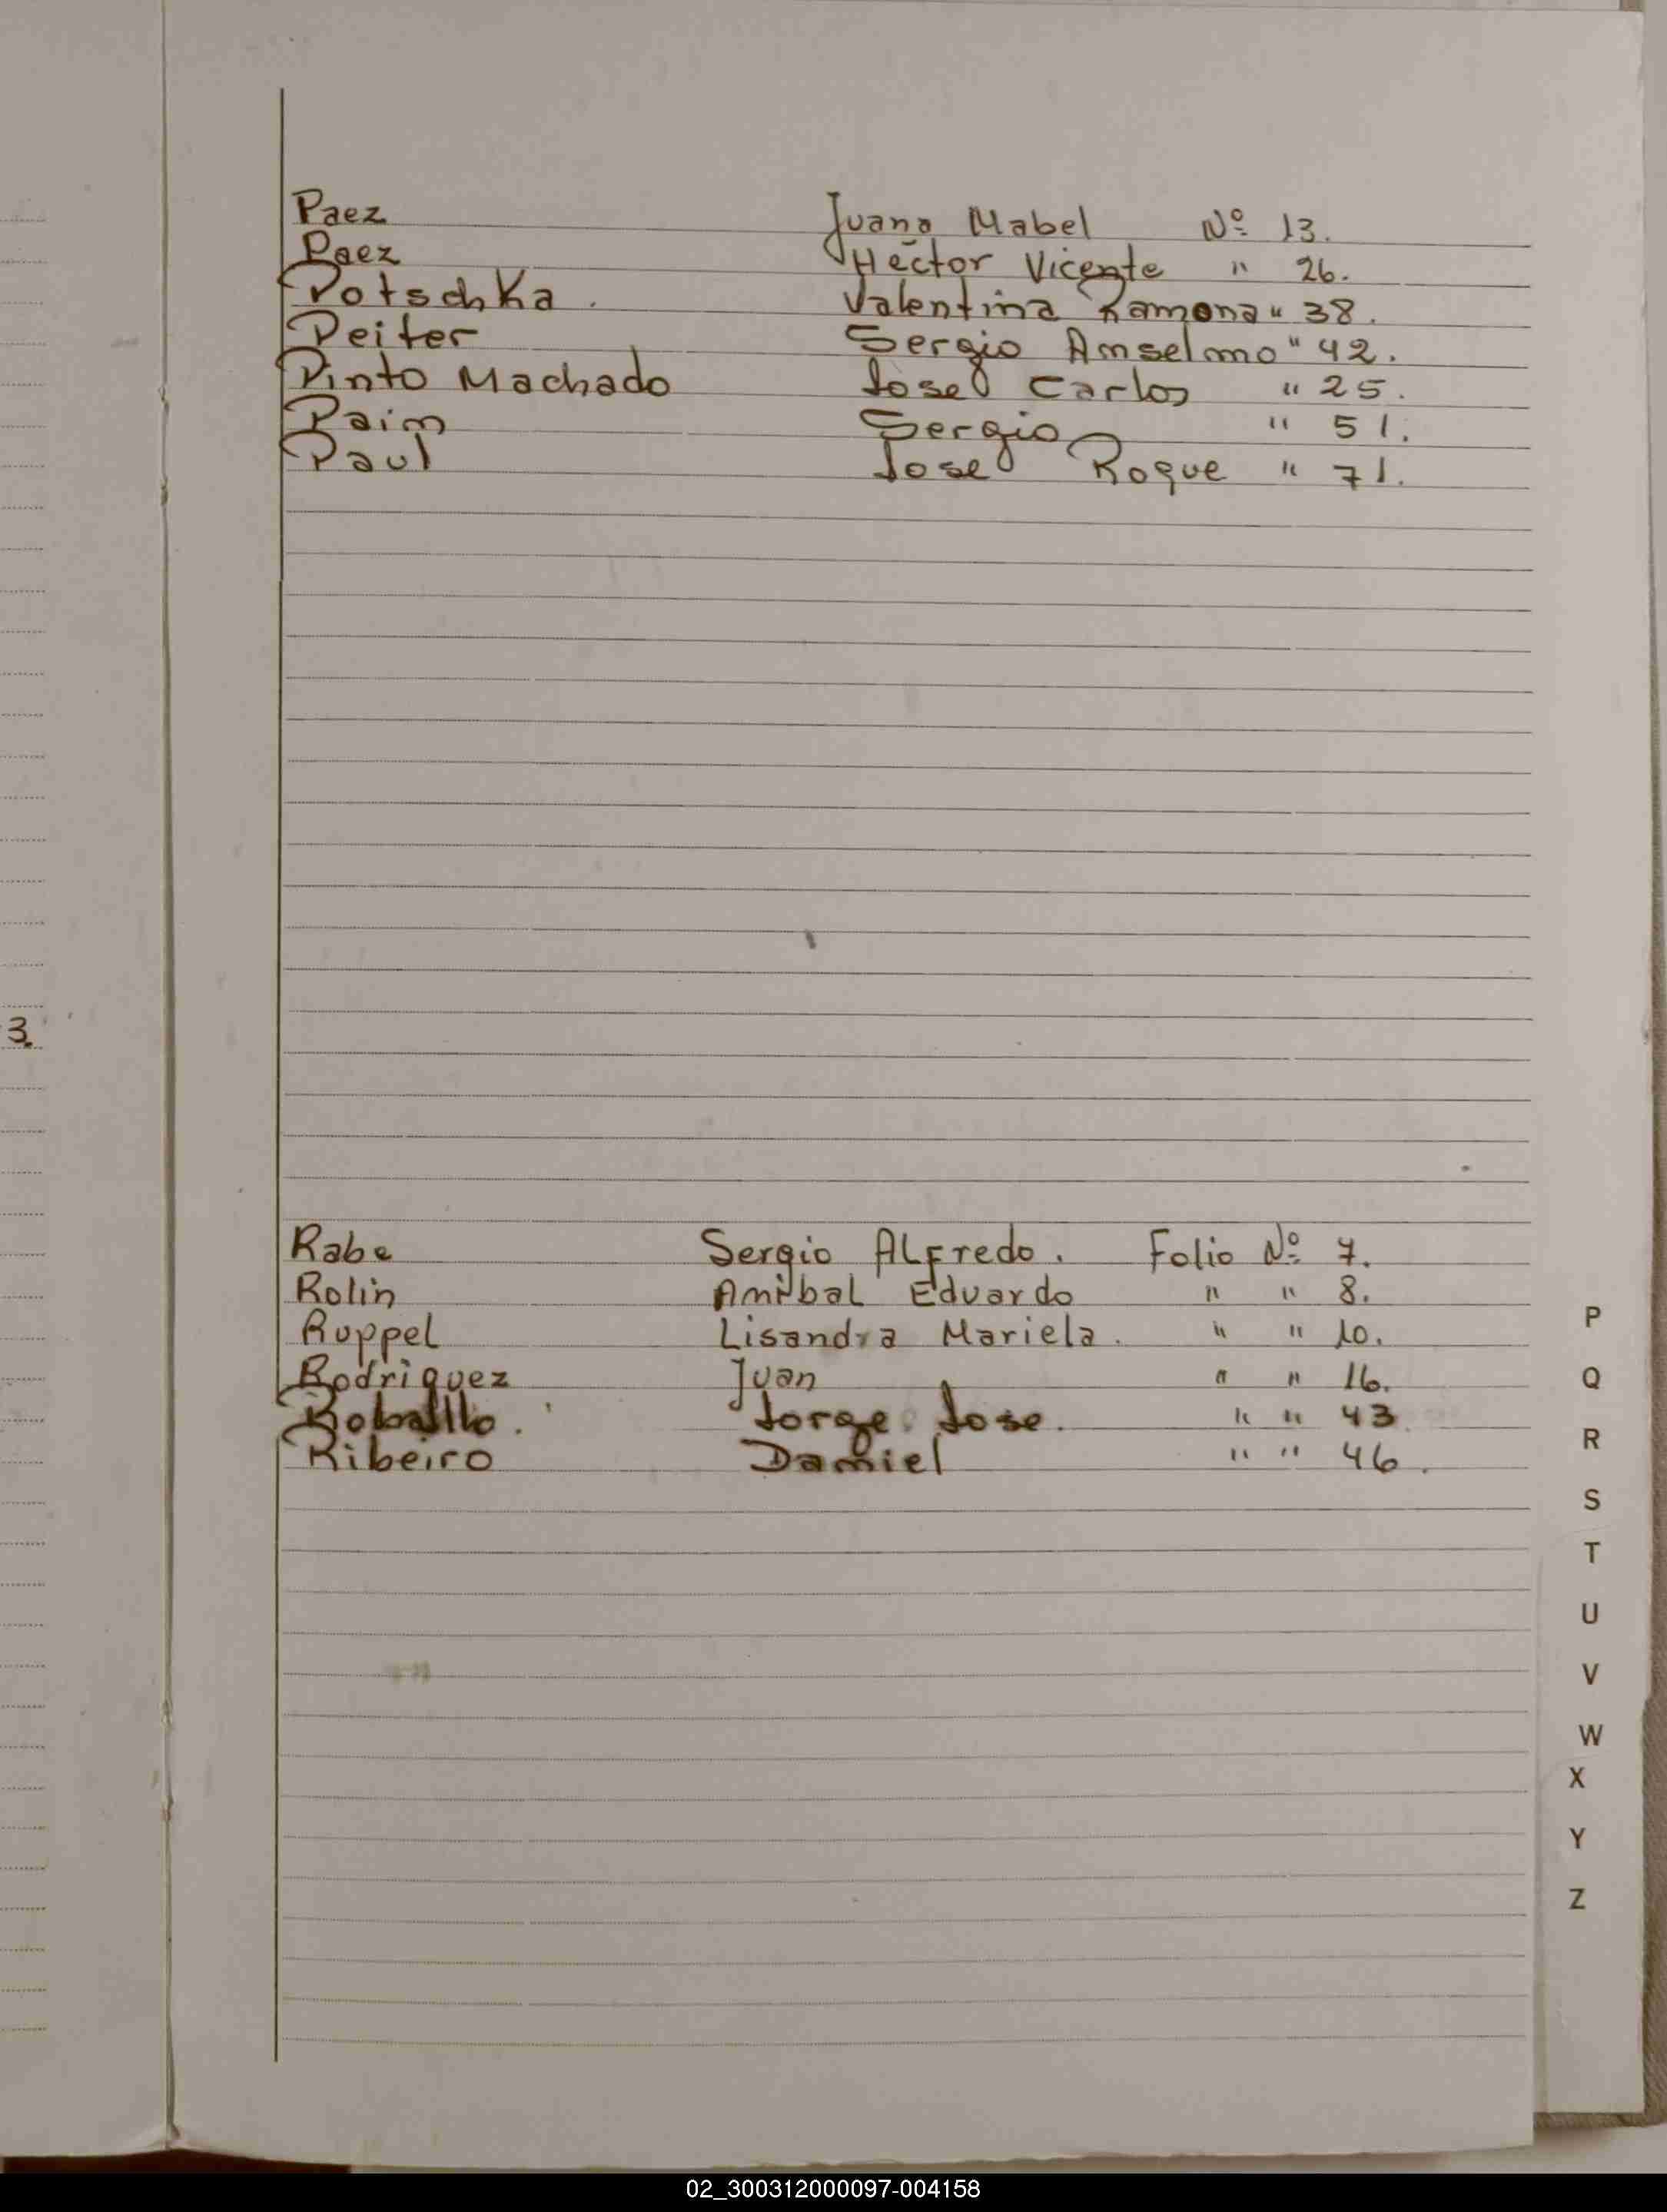 Paez Juana Mabel Nº 13.
Paez Hector Vicente " 26.
Potschka. Valentina Ramona " 38.
Peiter Sergio Anselmo " 42.
Pinto Machado Jose Carlos " 25.
Paim Sergio " 51.
Paul Jose Roque " 71.
3.
Rabe Sergio ALFredo. Folio Nº 7.
Rolin Anibal Eduardo " " 8.
Ruppel Lisandra Mariela. " " 10.
Rodriguez Juan " " 16.
Jorge Jose. " " 43
Ribeiro Daniel " " 46.
P
Q
R
S
T
U
V
W
X
Y
Z
02_300312000097-004158